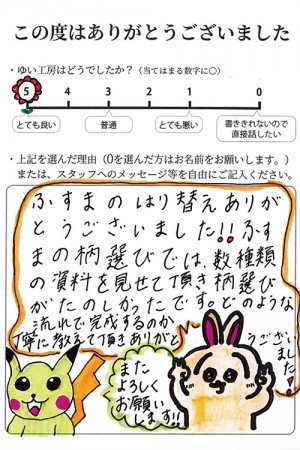 この度はありがとうございました
・ゆい工房はどうでしたか？（当てはまる数字に〇）
5 4 3 2 1 0
とても良い 普通 とても悪い 書ききれないので
直接話したい
・上記を選んだ理由（0を選んだ方はお名前をお願いします。）
または、スタッフへのメッセージ等を自由にご記入ください。
ふすまのはり替えありが
とうございました!!ふす
まの柄選びでは、数種類
の資料を見せて頂き柄選び
がたのしかったです。どのような
流れで完成するのか
丁寧に教えて頂きありがと
うござい
ました
また
よろしく
お願い
します!!